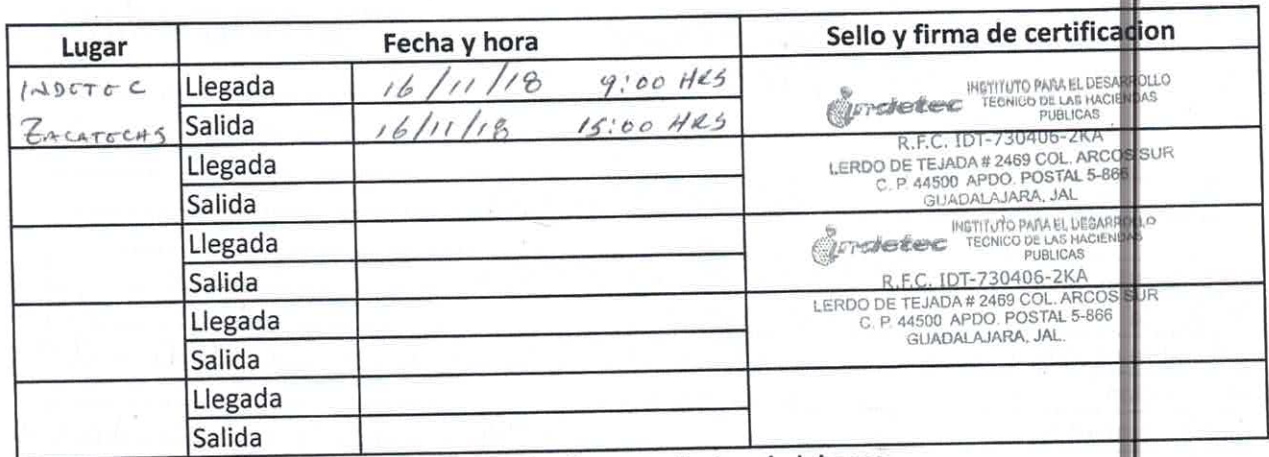 Lugar Fecha y hora Sello y firma de certificacion
INDETEC Llegada 16/11/18 9:00 HRS
ZACATECAS Salida 16/11/18 15:00 HRS
indetec INSTITUTO PARA EL DESARROLLO
TECNICO DE LAS HACIENDAS
PUBLICAS
R.F.C. IDT-730406-2KA
LERDO DE TEJADA # 2469 COL. ARCOS SUR
C. P. 44500 APDO. POSTAL 5-866
GUADALAJARA, JAL
Llegada
Salida
Llegada
Salida
indetec INSTITUTO PARA EL DESARROLLO
TECNICO DE LAS HACIENDAS
PUBLICAS
R.F.C. IDT-730406-2KA
LERDO DE TEJADA # 2469 COL. ARCOS SUR
C. P. 44500 APDO. POSTAL 5-866
GUADALAJARA, JAL.
Llegada
Salida
Llegada
Salida